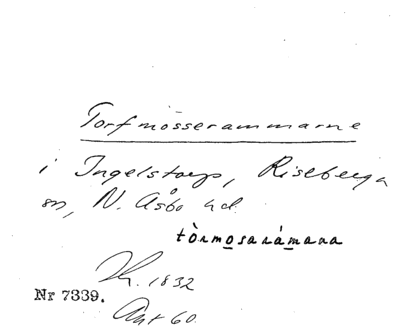 Torfmösserammarne
i Ingelstorp, Riseberga
sn, N. Åsbo hd.
tòrmosarámana
1832
Nr 7339.
Ant 60.